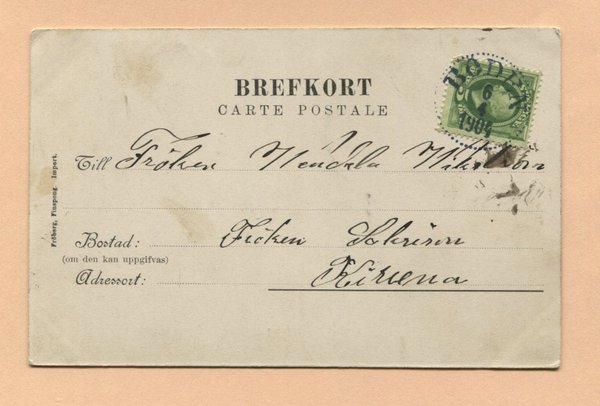 BREFKORT
CARTE POSTALE
BODEN
6
1904
Till Fröken Hendela
Bostad: Fröken
(om den kan uppgifvas)
Adressort: Kiruna
Fröberg, Finspong. Import.